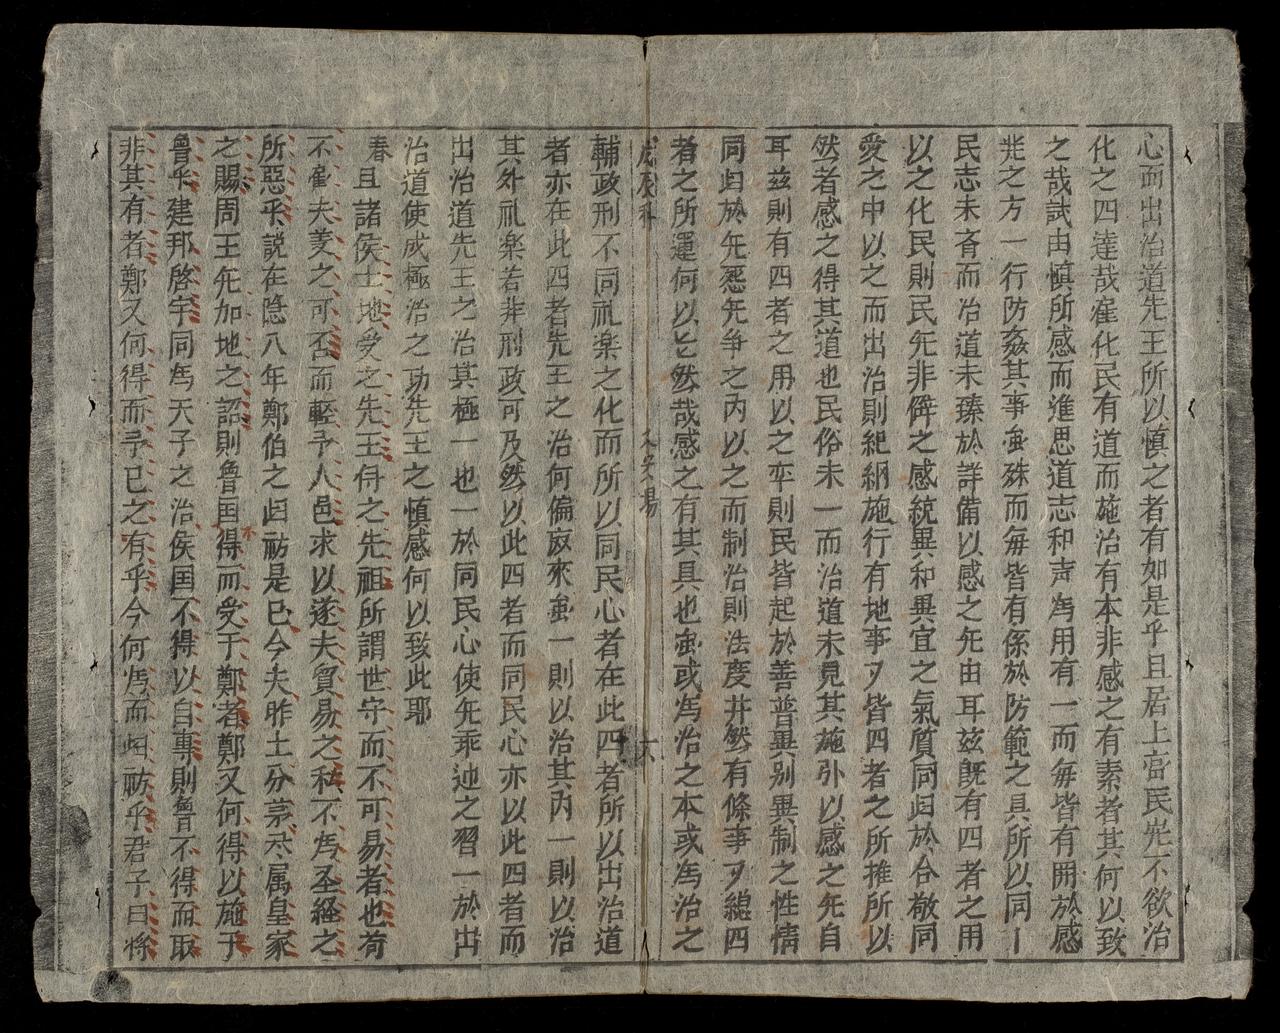 心而出治道先王所以慎之者有如是乎且居上當民岂不欲治
化之四達哉雀化民有道而施治有本非感之有素者其何以致
之哉試由慎所感而進思道志和声為用有一而每皆有開於感
𠒇之方一行防姦其事虽殊而每皆有係於防範之具所以同一
民志未斉而治道未臻於詳備以感之旡由耳兹旣有四者之用
以之化民則民旡非僻之感統異和異宜之氣質同㱕於合敬同
愛之中以之而出治則紀綱施行有地事〻皆四者之所推所以
然者感之得其道也民俗未一而治道未見其施引以感之旡自
耳兹則有四者之用以之率則民皆起於善普異别異制之性情
同㱕於旡惡旡争之内以之而制治則法度井然有條事〻総四
者之所運何以〻然哉感之有其具也虽或為治之本或為治之
戊辰科 文矣場 六
輔政刑不同礼楽之化而所以同民心者在此四者所以出治道
者亦在此四者先王之治何偏㝷來虽一則以治其内一則以治
其外礼楽若非刑政可及然以此四者而同民心亦以此四者而
出治道先王之治其極一也一於同民心使旡乖迆之習一於出
治道使成極治之功先王之慎感何以致此耶
春且諸侯土地受之先王侍之先祖所謂世守而不可易者也苟
不雇夫义之可否而輕予人邑求以遂夫貿易之私不為圣経之
所惡乎説在隐八年鄭伯之㱕祊是已今夫胙土分茅忝属皇家
之賜周王旡加地之詔則魯国得而受于鄭者鄭又何得以施于
魯乎建邦啓宇同為天子之治侯国不得以自專則魯不得而取
非其有者鄭又何得而予已之有乎今何為而㱕祊乎君子曰將